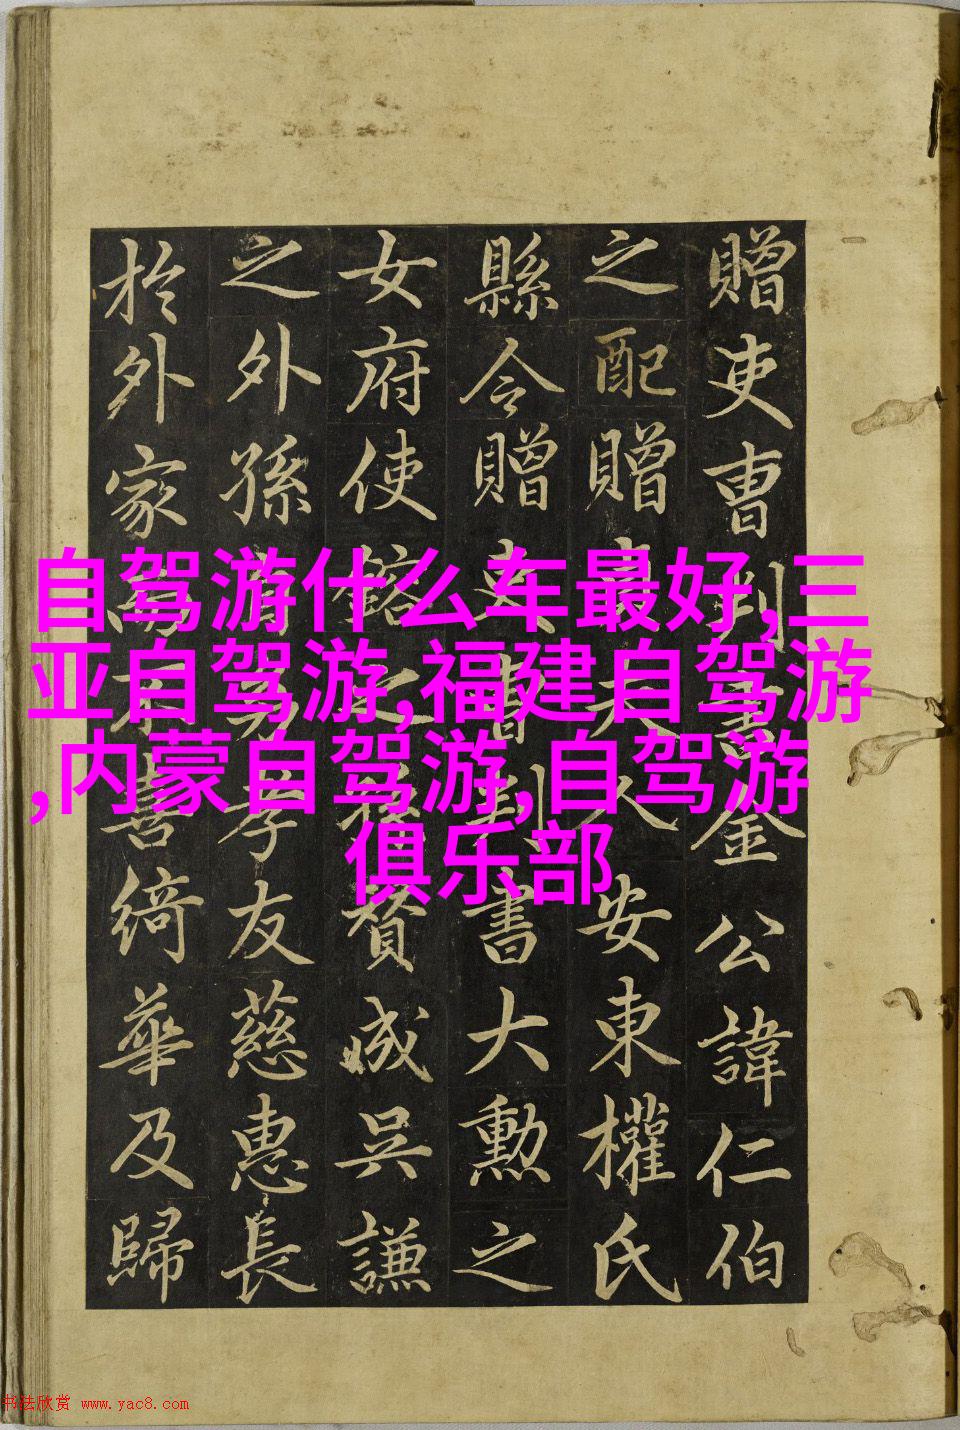 自驾游什么车最好,三
亚自驾游,福建自驾游
,内蒙自驾游,自驾游
俱乐部
贈吏曹判書金公諱仁伯
之配贈貞夫人安東權氏
縣令贈吏曹判書大勳之
女府使之孫贊成吳謙
之外孫孝友慈惠長
於外家喜綺華及歸
书法欣赏 www.yac8.com